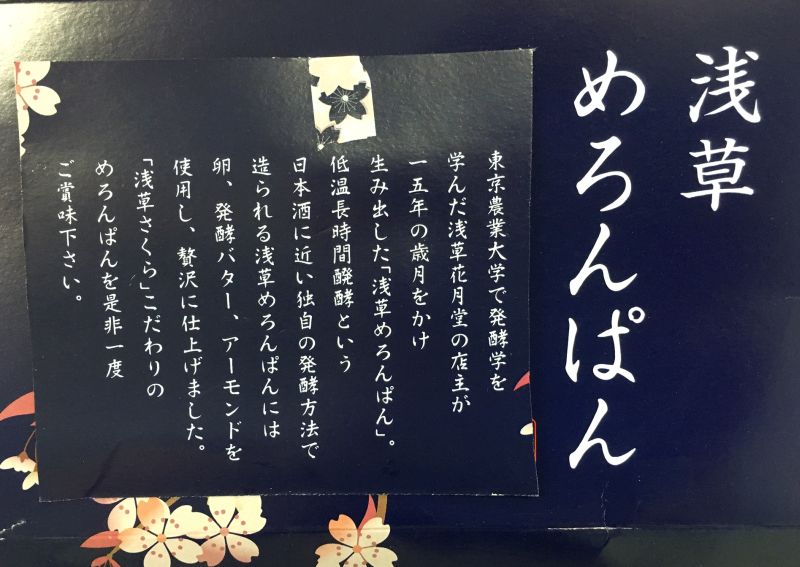 浅草
めろんぱん
東京農業大学で発酵学を
学んだ浅草花月堂の店主が
一五年の歳月をかけ
生み出した「浅草めろんぱん」。
低温長時間醗酵という
日本酒に近い独自の発酵方法で
造られる浅草めろんぱんには
卵、発酵バター、アーモンドを
使用し、贅沢に仕上げました。
「浅草さくら」こだわりの
めろんぱんを是非一度
ご賞味下さい。